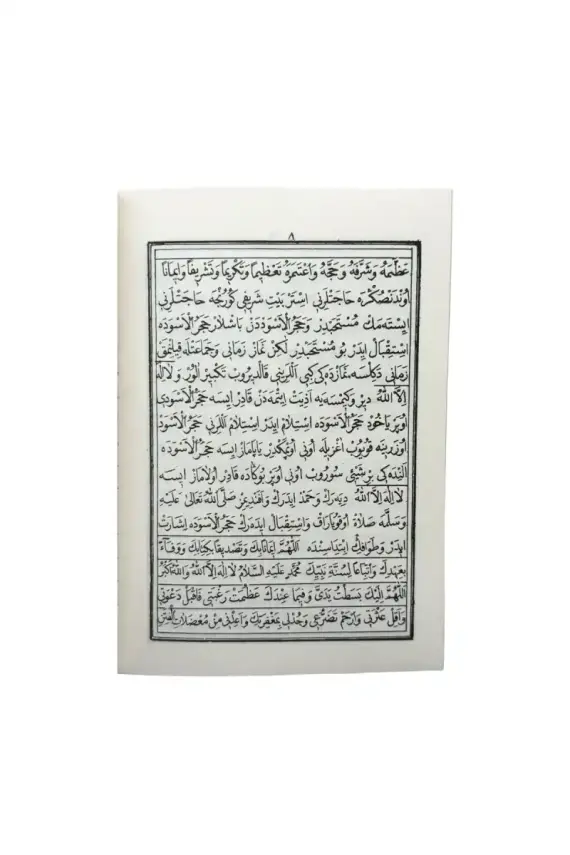 ٨
عَظَّمَهُ وَشَرَّفَهُ وَحَجَّهُ وَاعْتَمَرَهُ تَعْظِيماً وَتَكْرِيماً وَتَشْرِيفاً وَاِيمَاناً
اُوندَنْصُكْرَه حَاجَتْلَرِنِي اِسْتَرْ بَيْتِ شَرِيفِي كُورُنْجَه حَاجَتْلَرِنِي
اِيسْتَه مَكْ مُسْتَحَبْدِرْ وَحَجَرُ الْاَسْوَدْدَنْ بَاشْلَارْ حَجَرُ الْاَسْوَدَه
اِسْتِقْبَالْ اِيدَرْ بُو مُسْتَحَبْدِرْ لٰكِنْ نَمَازْ زَمَانِي وَجَمَاعَتْلَه قِيلِنْمَقْ
زَمَانِي دَكِلْسَه نَمَازْدَه كِي كِبِي اَللَّرِينِي قَالْدِيرُوبْ تَكْبِيرْ اَلُورْ وَلَا اِلٰهَ
اِلَّا اللّٰهُ دِيرْ وَكِمْسَه يَه اَذِيَتْ اِيتْمَه دَنْ قَادِرْ اِيسَه حَجَرُ الْاَسْوَدِي
اُوپَرْ يَاخُودْ حَجَرُ الْاَسْوَدَه اِسْتِلَامْ اِيدَرْ اِسْتِلَامْ اَللَّرِنِي حَجَرُ الْاَسْوَدْ
اُوزَرِينَه قُويُوبْ اَغْزِيلَه اُونِي اُوپْمَكْدِرْ يَاپَامَازْ اِيسَه حَجَرُ الْاَسْوَدَه
اَلِنْدَه كِي بِرْ شَيْئِي سُورُوبْ اُونِي اُوپَرْ بُوكَادَه قَادِرْ اُولَامَازْ اِيسَه
لَا اِلٰهَ اِلَّا اللّٰهُ دِيَه رَكْ وَحَمْدْ اِيدَرَكْ وَاَفَنْدِمِزْ صَلَّى اللّٰهُ تَعَالٰى عَلَيْهِ
وَسَلَّمَه صَلَاةْ اُوقُويَارَاقْ وَاِسْتِقْبَالْ اِيدَه رَكْ حَجَرُ الْاَسْوَدَه اِشَارَتْ
اِيدَرْ وَطَوَافِكْ اِبْتِدَاسِنْدَه اَللّٰهُمَّ اِيمَاناً بِكَ وَتَصْدِيقاً بِكِتَابِكَ وَوَفَاءً
بِعَهْدِكَ وَاتِّبَاعاً لِسُنَّةِ نَبِيِّكَ مُحَمَّدٍ عَلَيْهِ السَّلَامُ لَا اِلٰهَ اِلَّا اللّٰهُ وَاللّٰهُ اَكْبَرُ
اَللّٰهُمَّ اِلَيْكَ بَسَطْتُ يَدَيَّ وَفِيمَا عِنْدَكَ عَظُمَتْ رَغْبَتِي فَاقْبَلْ دَعْوَتِي
وَاَقِلْ عَثْرَتِي وَارْحَمْ تَضَرُّعِي وَجُدْ لِي بِمَغْفِرَتِكَ وَاَعِذْنِي مِنْ مُعْضَلَاتِ الْفِتَنِ